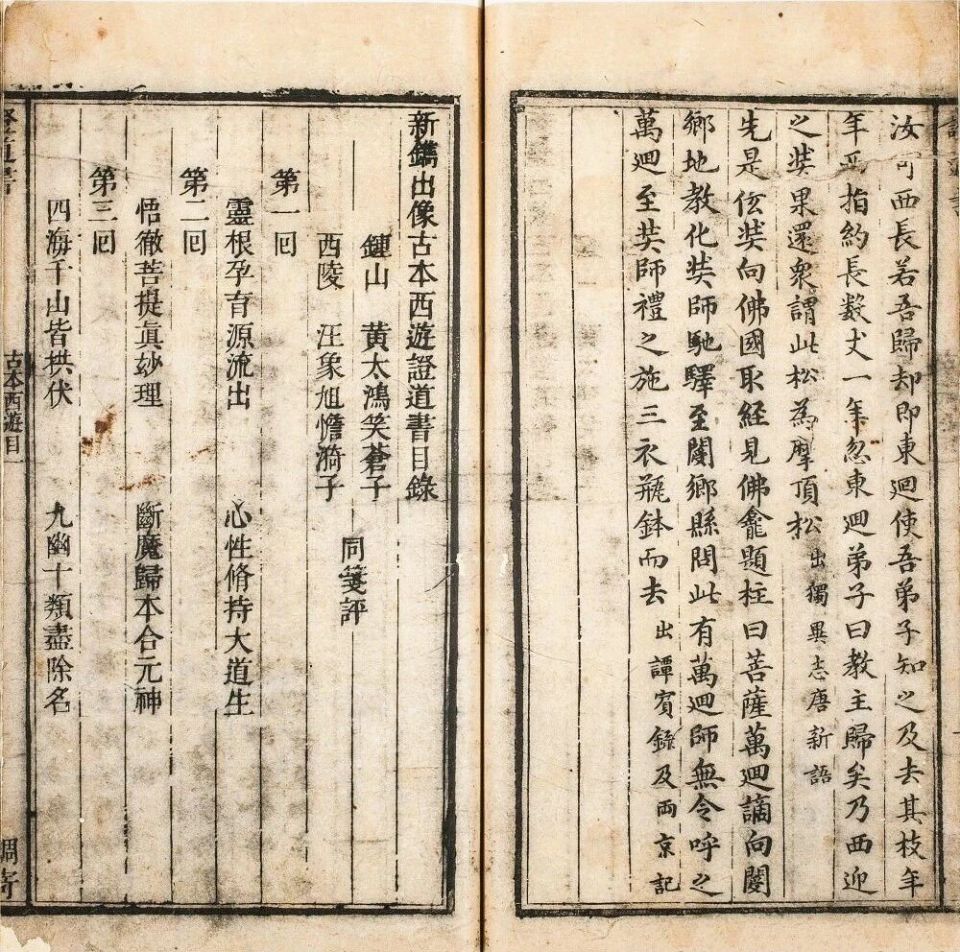 汝可西長若吾歸却即東迴使吾弟子知之及去其枝年
年西指約長數丈一年忽東迴弟子曰教主歸矣乃西迎
之奘果還衆謂此松為摩頂松出獨異志唐新語
先是伭奘向佛國取經見佛龕題柱曰菩薩萬迴謫向閿
鄉地教化奘師馳驛至閿鄉縣問此有萬迴師無令呼之
萬迴至奘師禮之施三衣瓶鉢而去出譚賓錄及兩京記
新鐫出像古本西遊證道書目錄
鍾山 黃太鴻笑蒼子
西陵 汪象旭憺漪子
同箋評
第一囘
靈根孕育源流出 心性脩持大道生
第二囘
悟徹菩提眞妙理 斷魔歸本合元神
第三囘
四海千山皆拱伏 九幽十類盡除名
古本西遊目一